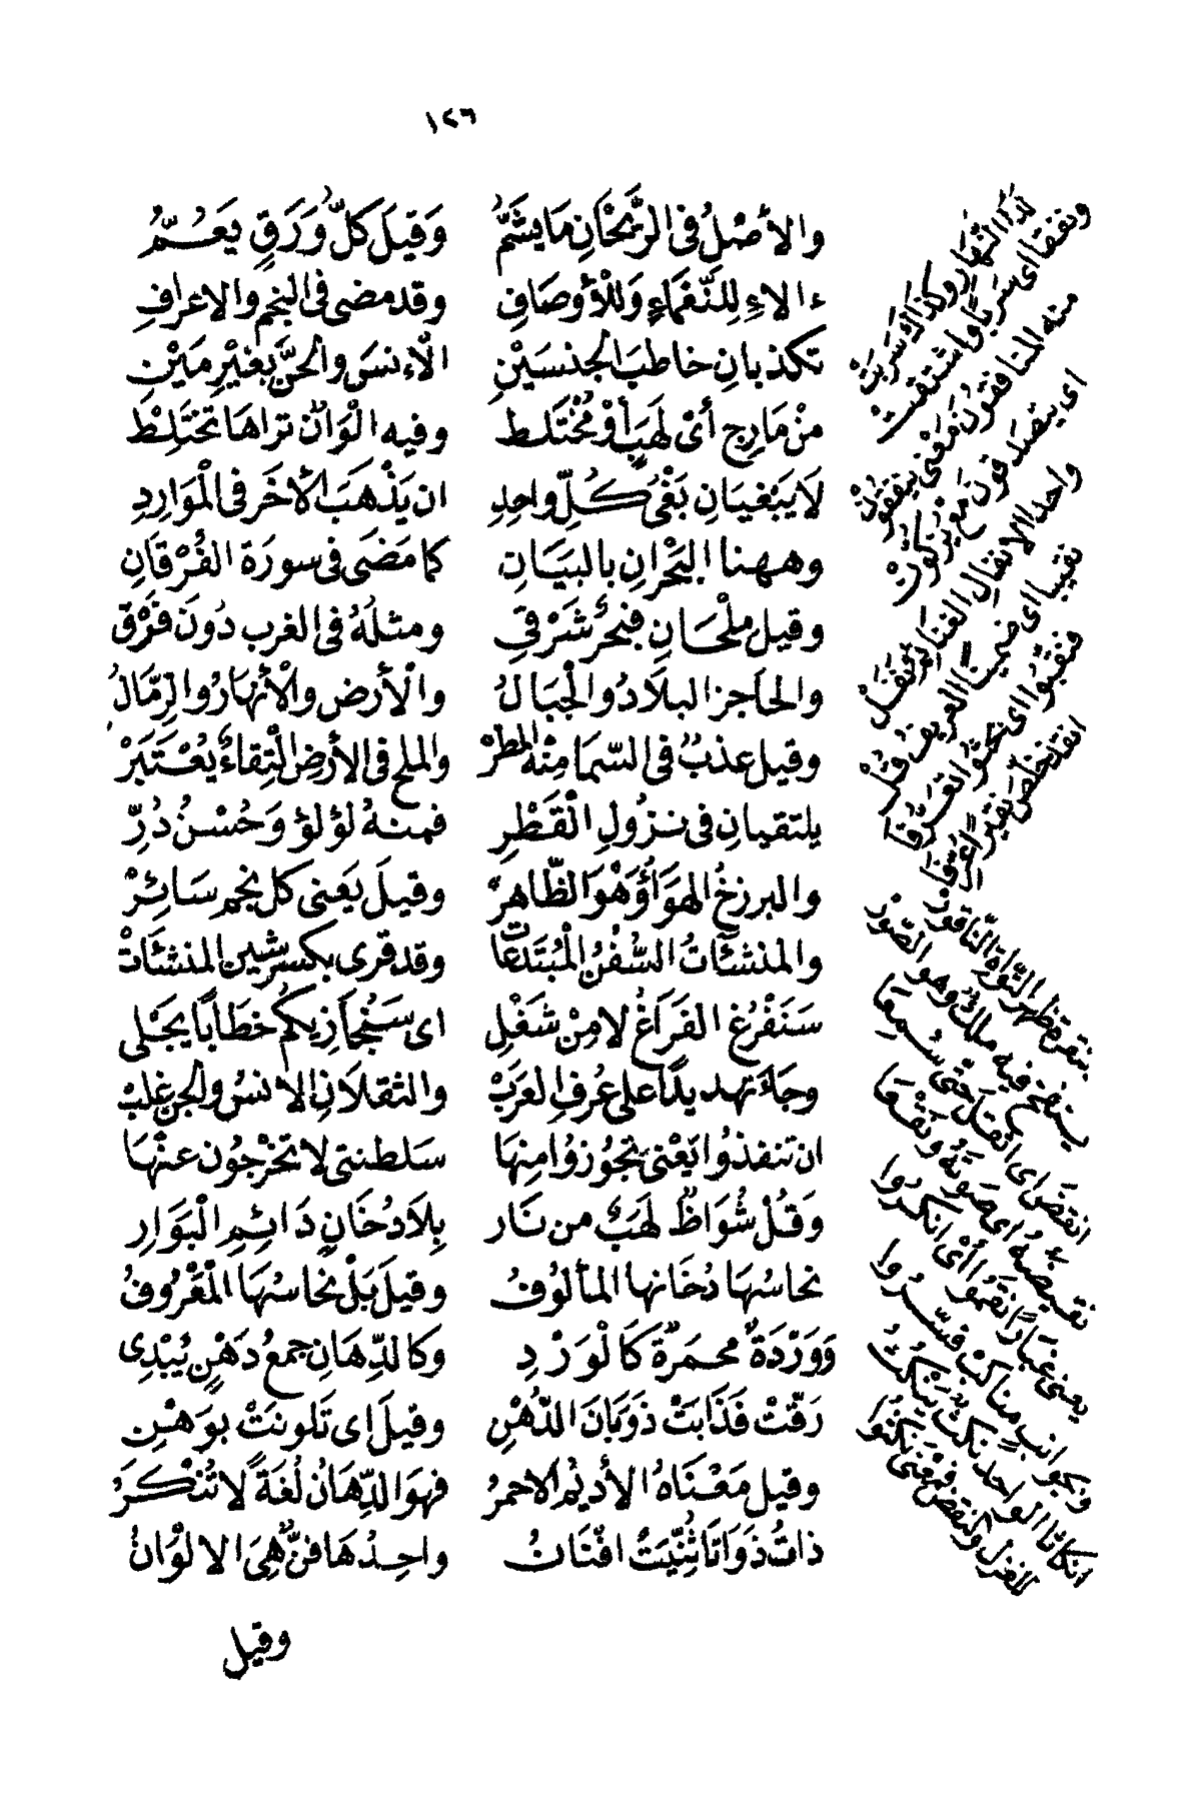 ١٢٦
والأصْلُ فى الرَّيْحَانِ مَا يشَمُّ وَقيلَ كلُّ وَرَقٍ يَعُمُّ
ءالاءِ لِلنَّعْمَاءِ وَللْأوصَافِ وقد مضى فى النجم والاعرافِ
تكذبانِ خاطبَ الجنسَيْنِ الْاِنسَ والجنَّ بغَيْرِ مَيْنِ
مِنْ مَارِجٍ أىْ لَهَبٍ أوْ مُخْتَلط وفيه الْوَانٌ تراهَا تختَلِطْ
لَا يَبْغيَانِ بَغْىُ كُلِّ واحِدِ ان يَذْهَبَ الْآخَر فى الْمَوَارِدِ
وههنا البَحْرانِ بالبَيَانِ كما مَضَى فى سورَة الفُرْقَانِ
وقيل مِلْحَانِ فبَحْرُ شَرْقِ ومثلُهُ فى الغرب دُونَ فَرْقِ
والحاجز البلَادُ والْجِبَالُ والْأرض والْأنْهارُ والرِّمَالُ
وقيل عذبٌ فى السّما مِنْهُ المطرْ والملح فى الأرضِ الْتِقاءٌ يُعْتَبَرْ
يلتقيانِ فى نزُولِ الْقَطْرِ فمنهُ لؤلؤ وَحُسْنُ دُرِّ
والبرزخُ الهَوَاءُ وَهْوَ الظّاهِرْ وقيلَ يَعنى كل نجم سَائِرْ
والمنشآتُ السُّفْنُ الْمُبْتَدعَاتْ وقد قرى بكسر شين المنشئاتْ
سَنَفْرُغ الفَرَاغُ لا مِنْ شَغْلِ اى سَنُجَازِيكُم خطَابًا يجَلى
وجَاءَ تهديدًا على عُرفِ العَرَبْ والثقلَانِ الانسُ والجن غلبْ
ان تنفذُوا يَعْنى تجُوزُوا مِنهَا سَلطنتى لَا تَخْرُجُون عنْهَا
وَقُلْ شُوَاظٌ لهَبٌ من نَار بِلَا دُخَانٍ دَائِمِ الْبَوَارِ
نحاسُهَا دُخَانها المألوُفُ وقيلَ بَلْ نحاسُهَا الْمَعْرُوفُ
وَوَرْدَةٌ محمَرةٌ كَالْوَرْدِ وكالدِّهَانِ جمعُ دَهْنٍ يُبْدِى
رَقّتْ فَذَابَتْ ذوَبَانَ الدُّهْنِ وقيلَ اى تَلونَتْ بوَهْنِ
وقيل مَعْنَاهُ الأديْم الاحمرُ فهوَ الدِّهَانُ لُغَةً لَا تُنْكَرُ
ذاتُ ذَوَاتَا ثُنِّيَتْ افْنَانُ واحِدُهَا فنٌّ هِىَ الالوَانُ
وقيل
لذا النّهَار وكذاك سَرَبَتْ
ونفقا اى سَربًا واشتقتْ
منه المنافقُونَ مَعْنى ينفقُونْ
اى يتصَدقونَ مَعْ يزكّونْ
واحد الانفالِ الغنائم نَفَلْ
نقيبا اى ضمينًا العريف قُلْ
فنقّبُوا اى بحثُوا تعَرُّفا
انقذ خلّص نقيرًا عُرِفَا
بنقرة ظهر النّواة النّاقورْ
ينفخ فيه ملك وهو الصّورْ
انقضَ اى اثقل حتّى سُمِعَا
نقيضهُ اى صَوتهُ ونَقْعَا
يعنى غبارًا نقمُوا أىْ انكرُوا
وبجوانبٍ مناكبْ فسّرُوا
انكاثا الواحد نكثٌ ينكثُ
للغزل والنقض فمعْنى نكثُوا